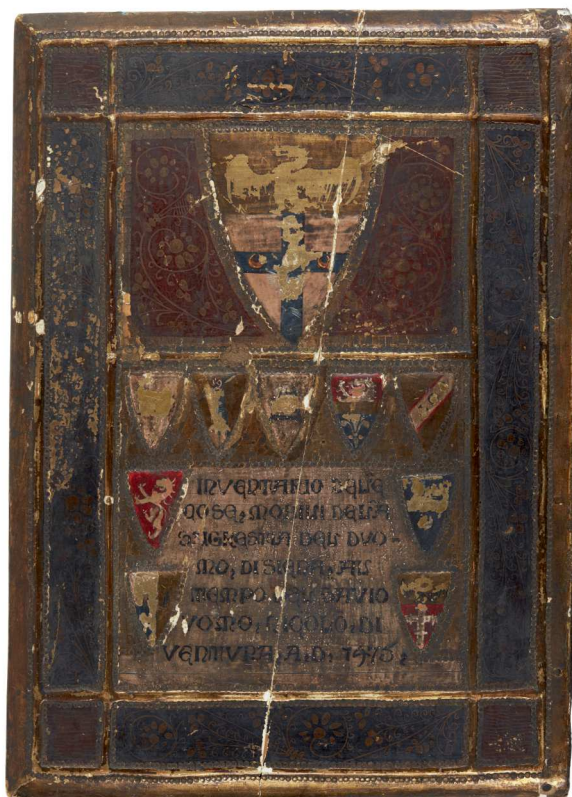 INVENTARIO DELE
COSE, MOBILI DELLA
SEIGRESTIA DEL DVO-
MO, DI SIENA, AL
TEMPO, DEL SAVIO
VOMO, NICOLO, DI
VENTVRA, A, D, 1475,